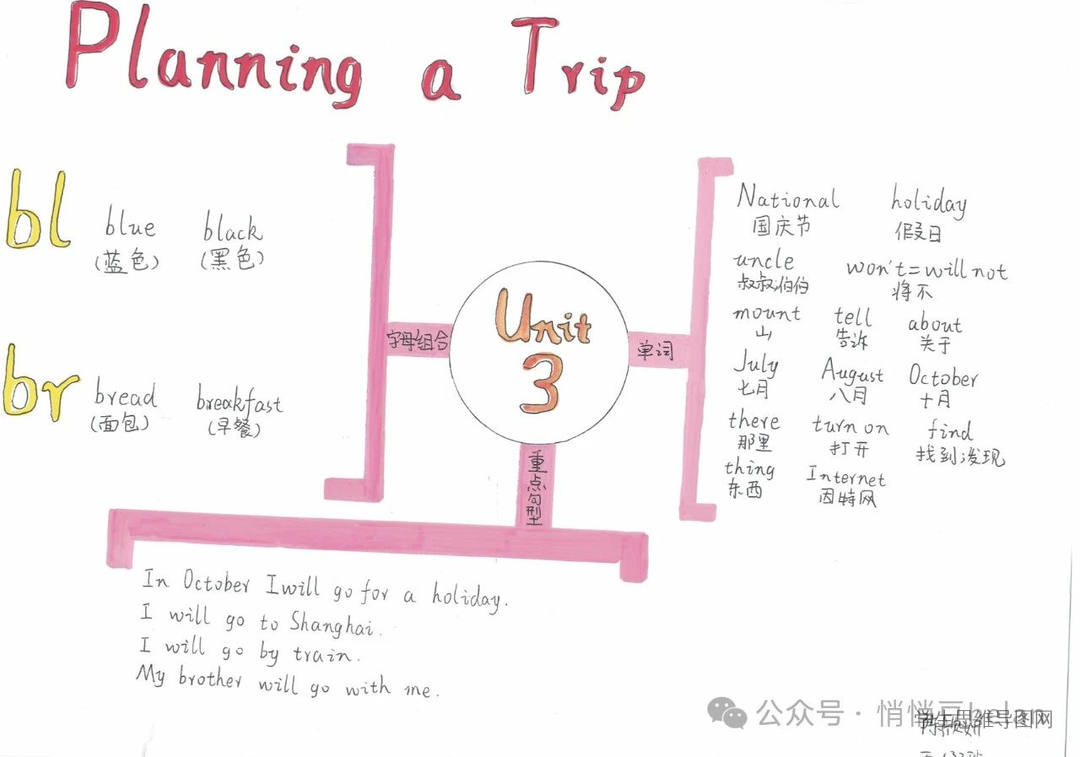 Planning a Trip
bl
blue black
(蓝色) (黑色)
br
bread breakfast
(面包) (早餐)
字母组合
Unit
3
单词
National holiday
国庆节 假日
uncle won't=will not
叔叔,伯伯 将不
mount tell about
山 告诉 关于
July August October
七月 八月 十月
there turn on find
那里 打开 找到,发现
thing Internet
东西 因特网
重点句型
In October I will go for a holiday.
I will go to Shanghai.
I will go by train.
My brother will go with me.
公众号·悄悄
学生思维导图网